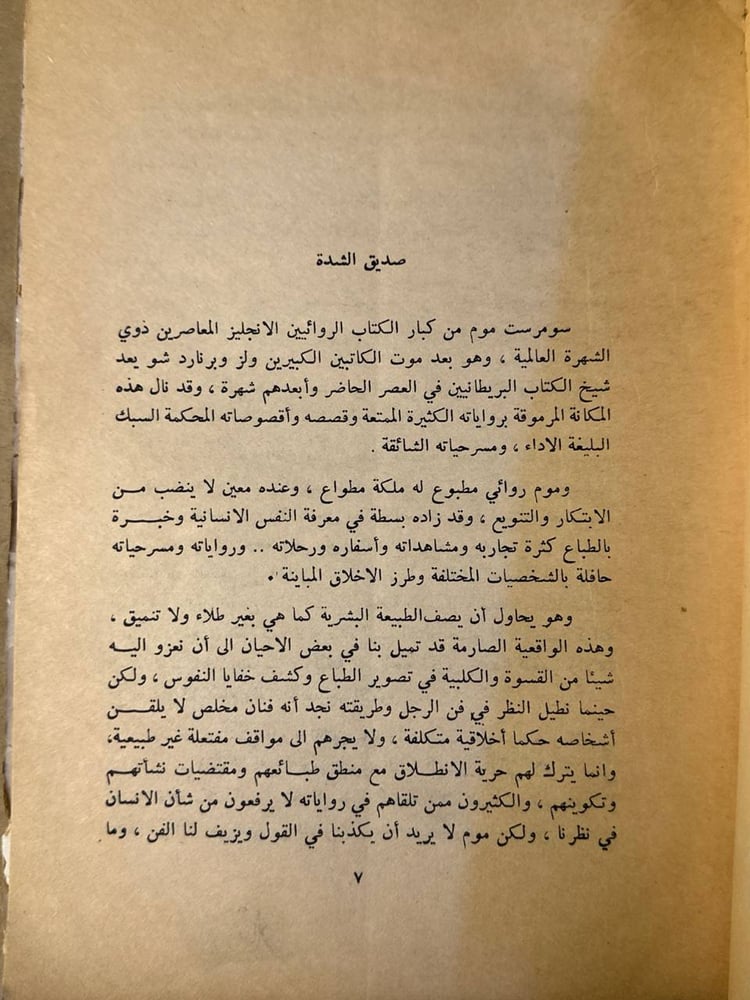 صديق الشدة
سومرست موم من كبار الكتاب الروائيين الانجليز المعاصرين ذوي
الشهرة العالمية ، وهو بعد موت الكاتبين الكبيرين ولز وبرنارد شو يعد
شيخ الكتاب البريطانيين في العصر الحاضر وأبعدهم شهرة ، وقد نال هذه
المكانة المرموقة برواياته الكثيرة الممتعة وقصصه وأقصوصاته المحكمة السبك
البليغة الاداء ، ومسرحياته الشائقة .
وموم روائي مطبوع له ملكة مطواع ، وعنده معين لا ينضب من
الابتكار والتنويع ، وقد زاده بسطة في معرفة النفس الانسانية وخبرة
بالطباع كثرة تجاربه ومشاهداته وأسفاره ورحلاته .. ورواياته ومسرحياته
حافلة بالشخصيات المختلفة وطرز الاخلاق المباينة .
وهو يحاول أن يصف الطبيعة البشرية كما هي بغير طلاء ولا تنميق ،
وهذه الواقعية الصارمة قد تميل بنا في بعض الاحيان الى أن نعزو اليه
شيئا من القسوة والكلبية في تصوير الطباع وكشف خفايا النفوس ، ولكن
حينما نطيل النظر في فن الرجل وطريقته نجد أنه فنان مخلص لا يلقن
أشخاصه حكما أخلاقية متكلفة ، ولا يجرهم الى مواقف مفتعلة غير طبيعية،
وانما يترك لهم حرية الانطلاق مع منطق طبائعهم ومقتضيات نشأتهم
وتكوينهم ، والكثيرون ممن تلقاهم في رواياته لا يرفعون من شأن الانسان
في نظرنا ، ولكن موم لا يريد أن يكذبنا في القول ويزيف لنا الفن ، وما
٧